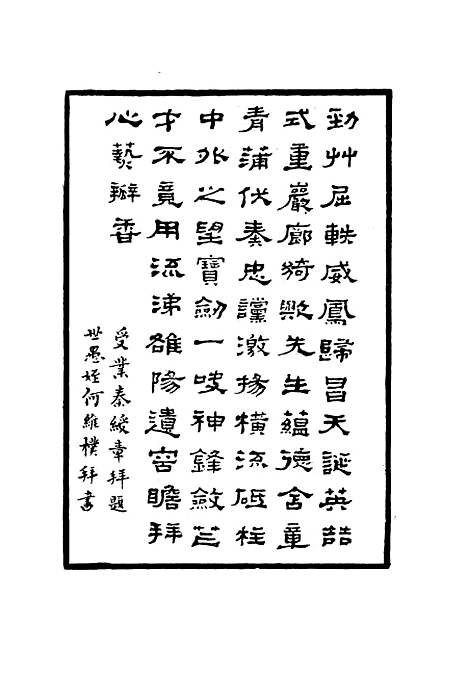 勁艸屈軼威鳳歸昌天誕英喆
式重巖廊猗歟先生蘊德含章
青蒲伏奏忠讜激揚橫流砥柱
中外之望寶劒一吷神鋒斂芒
才不竟用流涕雒陽遺容瞻拜
心藝瓣香
受業秦綬章拜題
世愚姪何維樸拜書